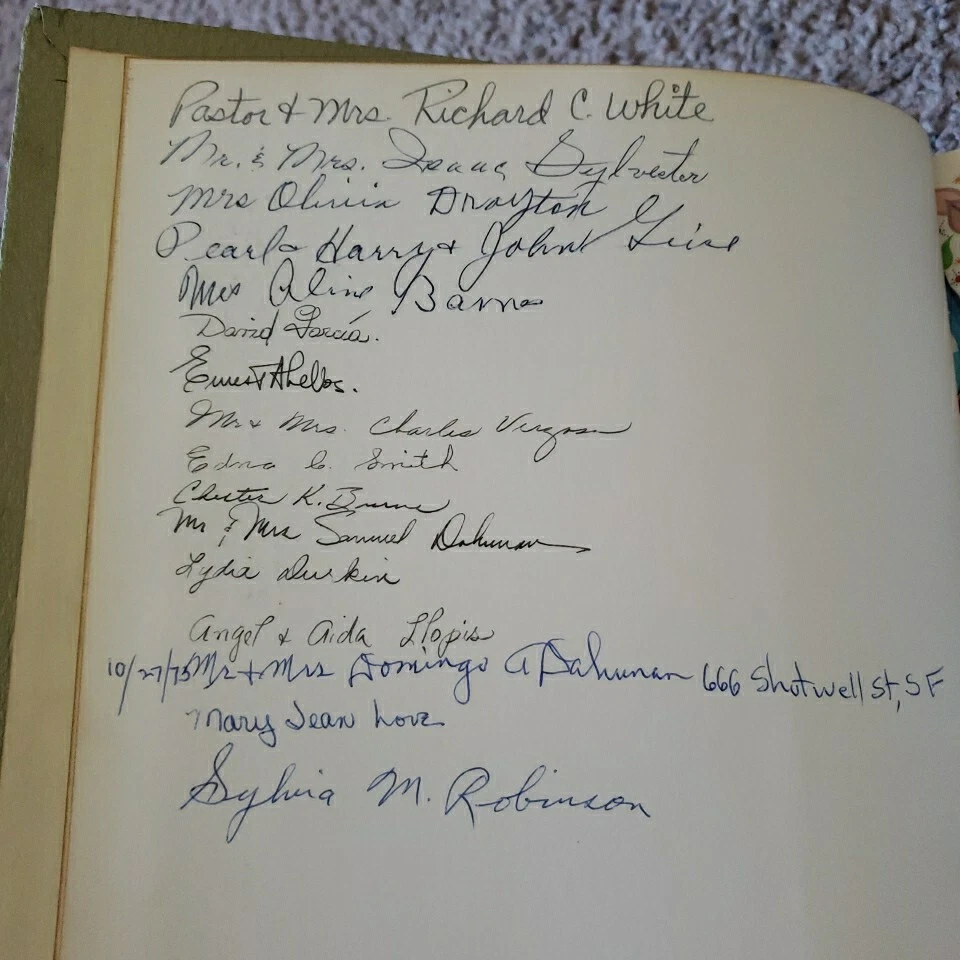 Pastor & Mrs. Richard C. White
Mr. & Mrs. Isaac Sylvester
Mrs Olivia Drayton
Pearl & Harry & John
Mrs Aline Barns
David García.
Ernest
Mr & Mrs. Charles
Edna C. Smith
Chester K.
Mr & Mrs Samuel Dahunan
Lydia Durkin
Angel & Aida Llopis
10/27/73 Mr + Mrs Domingo A Dahunan 666 Shotwell St, SF
Mary Jean Love
Sylvia M. Robinson